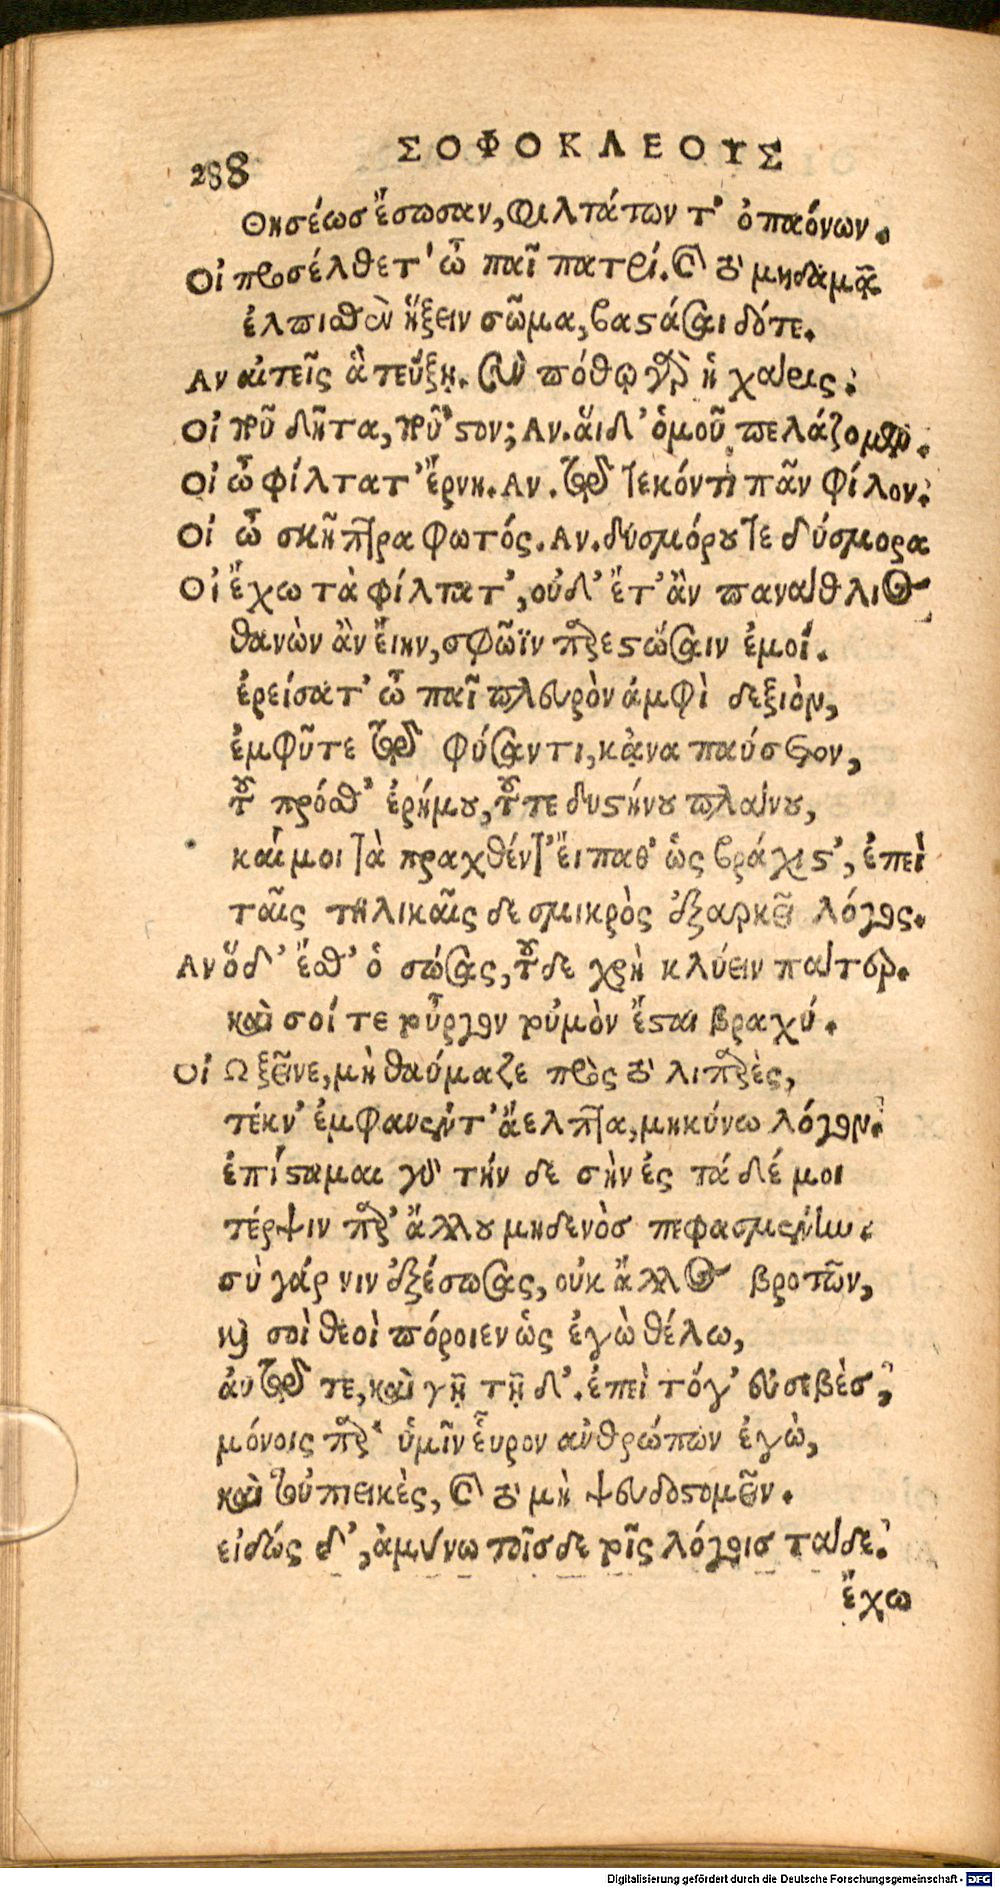 288
ΣΟΦΟΚΛΕΟΥΣ
Θησέωσ ἔσωσαν, φιλτάτων τ' ὀπαόνων.
Οἰ προσέλθετ' ὦ παῖ πατρί. καὶ τὸ μηδαμᾶ
ἐλπισθὲν ἥξειν σῶμα, βαστάσαι δότε.
Αν αἰτεῖς ἃ τεύξῃ. σὺν πόθῳ γὰρ ἡ χάρις.
Οἰ ποῦ δῆτα, ποῦ 'στον; Αν. αἵδ' ὁμοῦ πελάζομεν.
Οἰ ὦ φίλτατ' ἔρνη. Αν. τῷ τεκόντι πᾶν φίλον.
Οἰ ὦ σκῆπτρα φωτός. Αν. δυσμόρου τε δύσμορα
Οἰ ἔχω τὰ φίλτατ', οὐδ' ἔτ' ἂν πανάθλιος
θανὼν ἂν εἴην, σφῶϊν παρεστώσαιν ἐμοί.
ἐρείσατ' ὦ παῖ πλευρὸν ἀμφὶ δεξιὸν,
ἐμφῦτε τῷ φύσαντι, κἀναπαύσετον,
τοῦ πρόσθ' ἐρήμου, τοῦτε δυστήνου πλάνου,
καί μοι τὰ πραχθέντ' εἴπαθ' ὡς βράχιστ', ἐπεὶ
ταῖς τηλικαῖς δε σμικρὸς ἐξαρκεῖ λόγος.
Αν ὅδ' ἔσθ' ὁ σώσας, τοῦδε χρὴ κλύειν πάτερ.
καὶ σοί τε τοὖργον τοὐμὸν ἔσται βραχύ.
Οἰ Ω ξεῖνε, μὴ θαύμαζε πρὸς τὸ λιπαρὲς,
τέκν' ἐμφανέντ' ἄελπτα, μηκύνω λόγον.
ἐπίσταμαι γὸ τήν δε σὴν ἐς τά δέ μοι
τέρψιν παρ' ἄλλου μηδενὸσ πεφασμένην.
σὺ γάρ νιν ἐξέσωσας, οὐκ ἄλλος βροτῶν,
καὶ σοὶ θεοὶ πόροιεν ὡς ἐγὼ θέλω,
αὐτῷ τε, καὶ γῇ τῇ δ'. ἐπεὶ τόγ' εὐσεβὲσ,
μόνοις παρ' ὑμῖν εὗρον ἀνθρώπων ἐγὼ,
καὶ τὐπιεικὲς, καὶ τὸ μὴ ψευδοστομεῖν.
εἰδὼς δ', ἀμύνω τοῖσδε τοῖς λόγοισ τάδε.
ἔχω
Digitalisierung gefördert durch die Deutsche Forschungsgemeinschaft - DFG